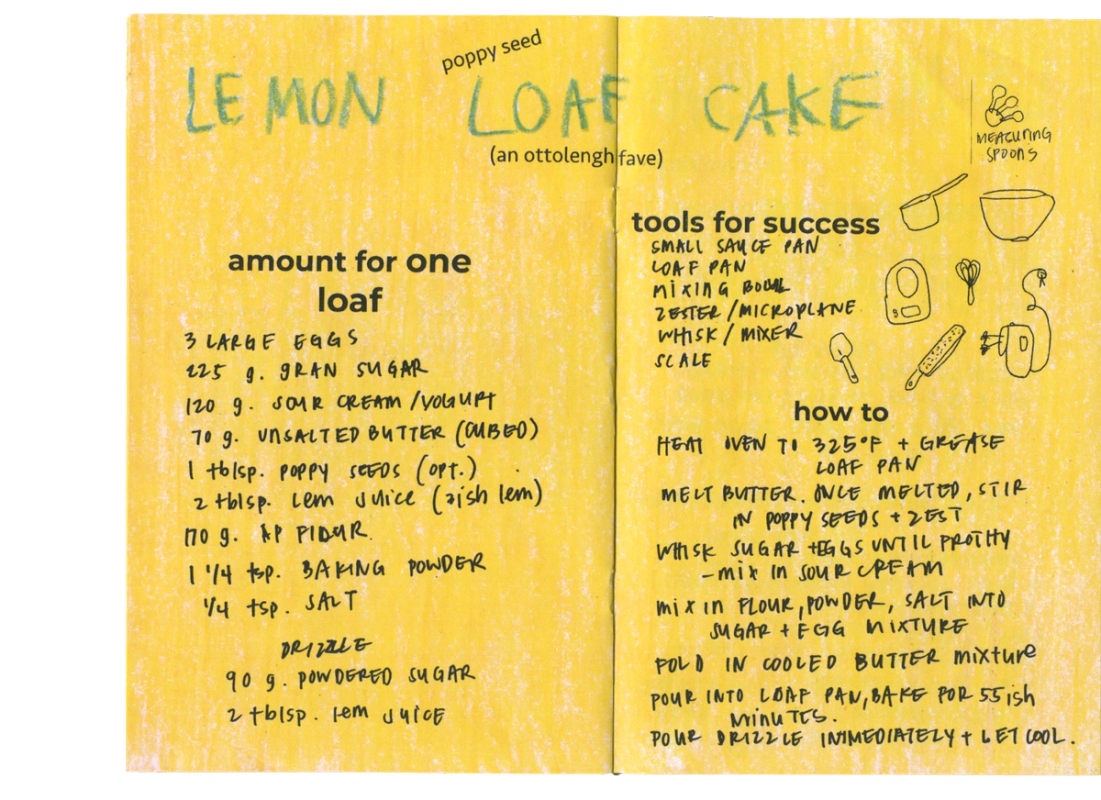 poppy seed
LEMON LOAF CAKE
(an ottolengh fave)
MEASURING
SPOONS
amount for one
loaf
3 LARGE EGGS
225 g. GRAN SUGAR
120 g. SOUR CREAM/YOGURT
70 g. UNSALTED BUTTER (CUBED)
1 tblsp. POPPY SEEDS (OPT.)
2 tblsp. Lem JUICE (ish lem)
170 g. AP FLOUR.
1 1/4 tsp. BAKING POWDER
1/4 tsp. SALT
DRIZZLE
90 g. POWDERED SUGAR
2 tblsp. lem JUICE
tools for success
SMALL SAUCE PAN
LOAF PAN
MIXING BOWL
ZESTER/MICROPLANE
WHISK/MIXER
SCALE
how to
HEAT OVEN TO 325°F + GREASE
LOAF PAN
MELT BUTTER. ONCE MELTED, STIR
IN POPPY SEEDS + ZEST
WHISK SUGAR + EGGS UNTIL FROTHY
- MIX IN SOUR CREAM
MIX IN FLOUR, POWDER, SALT INTO
SUGAR + EGG MIXTURE
FOLD IN COOLED BUTTER MIXTURE
POUR INTO LOAF PAN, BAKE FOR 55ish
MINUTES.
POUR DRIZZLE IMMEDIATELY + LET COOL.